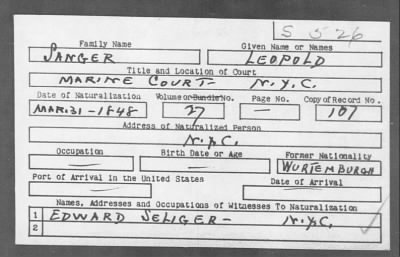 S 526
Family Name Given Name or Names
SANGER LEOPOLD
Title and Location of Court
MARINE COURT - N.Y.C.
Date of Naturalization Volume or Bundle No. Page No. Copy of Record No.
MAR. 31 - 1848 27 — 107
Address of Naturalized Person
N.Y.C.
Occupation Birth Date or Age Former Nationality
— — WURTEMBURGH
Port of Arrival in the United States Date of Arrival
— —
Names, Addresses and Occupations of Witnesses To Naturalization
1 EDWARD SELIGER - N.Y.C.
2